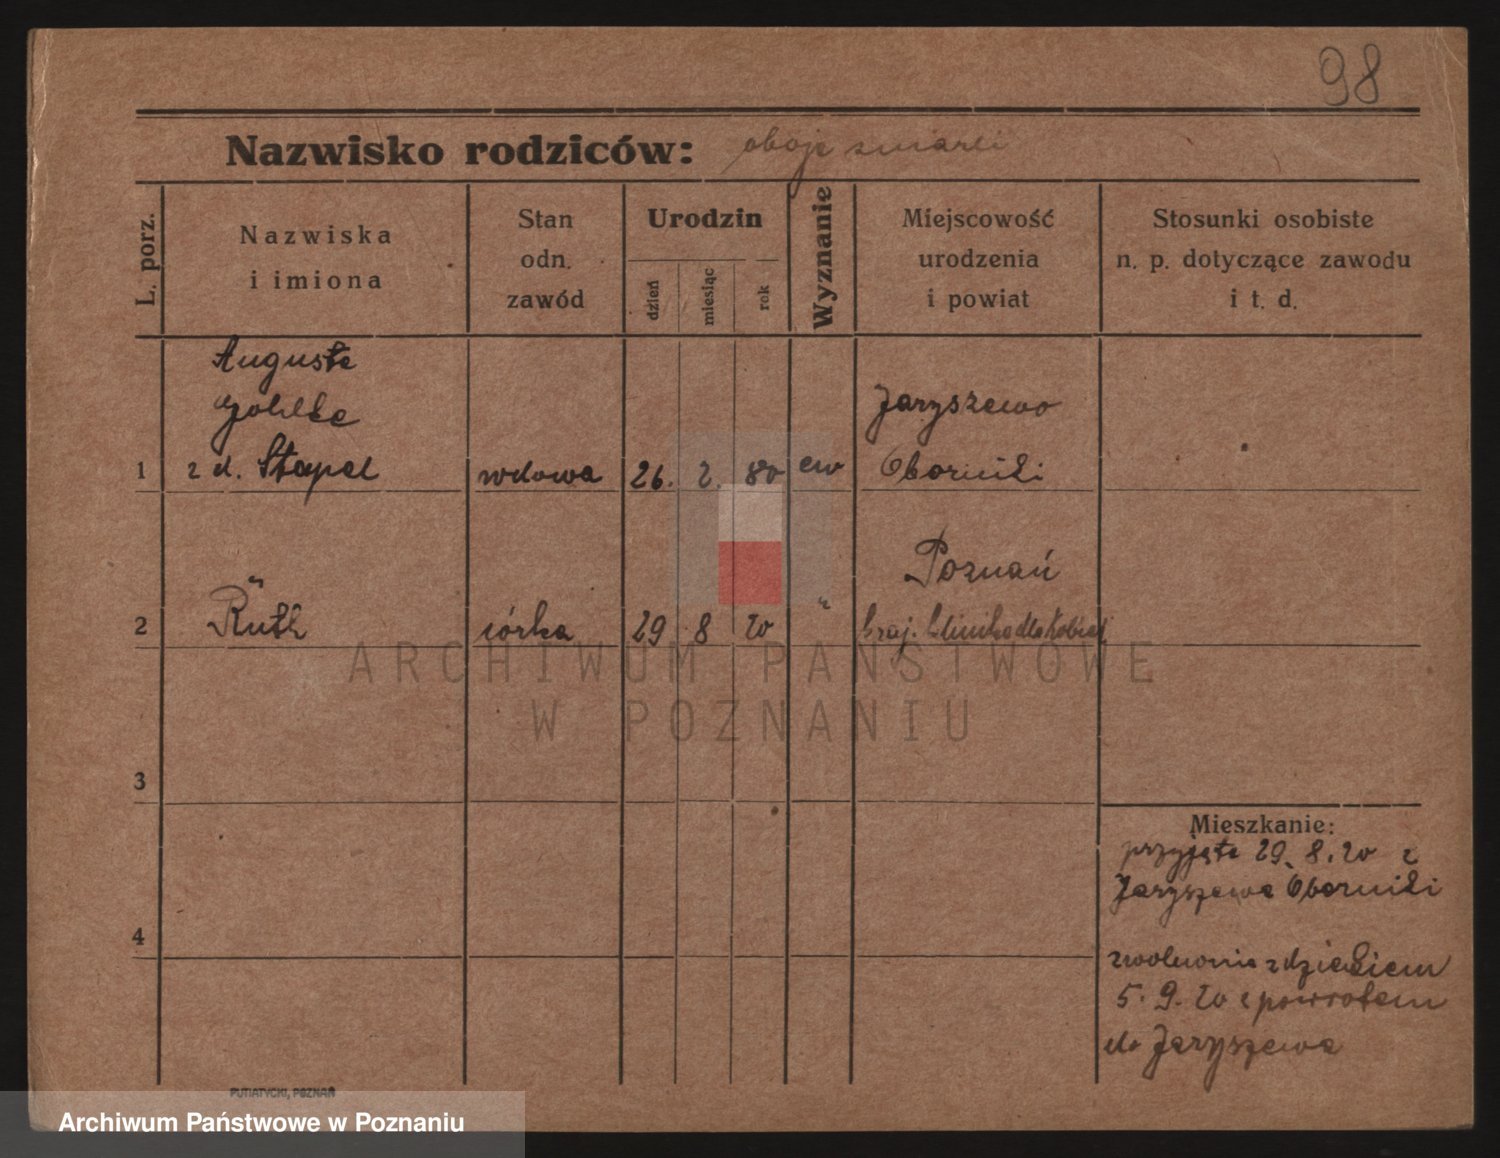 98
Nazwisko rodziców: oboje zmarli
L. porz.
Nazwiska
i imiona
Stan
odn.
zawód
Urodzin
dzień
miesiąc
rok
Wyznanie
Miejscowość
urodzenia
i powiat
Stosunki osobiste
n. p. dotyczące zawodu
i t. d.
Auguste
z d. Stapel
Jaryszewo
1 wdowa 26. 2. 80 ew Oborniki
Poznań
2 Ruth córka 29 8 20 " kraj. klinika dla kobiet
3
4
Mieszkanie:
przyjęta 29. 8. 20 z
Jaryszewa Oborniki
zwolniona z dzieckiem
5. 9. 20 z powrotem
do Jaryszewa
PUTIATYCKI, POZNAŃ
ARCHIWUM PAŃSTWOWE
W POZNANIU
Archiwum Państwowe w Poznaniu